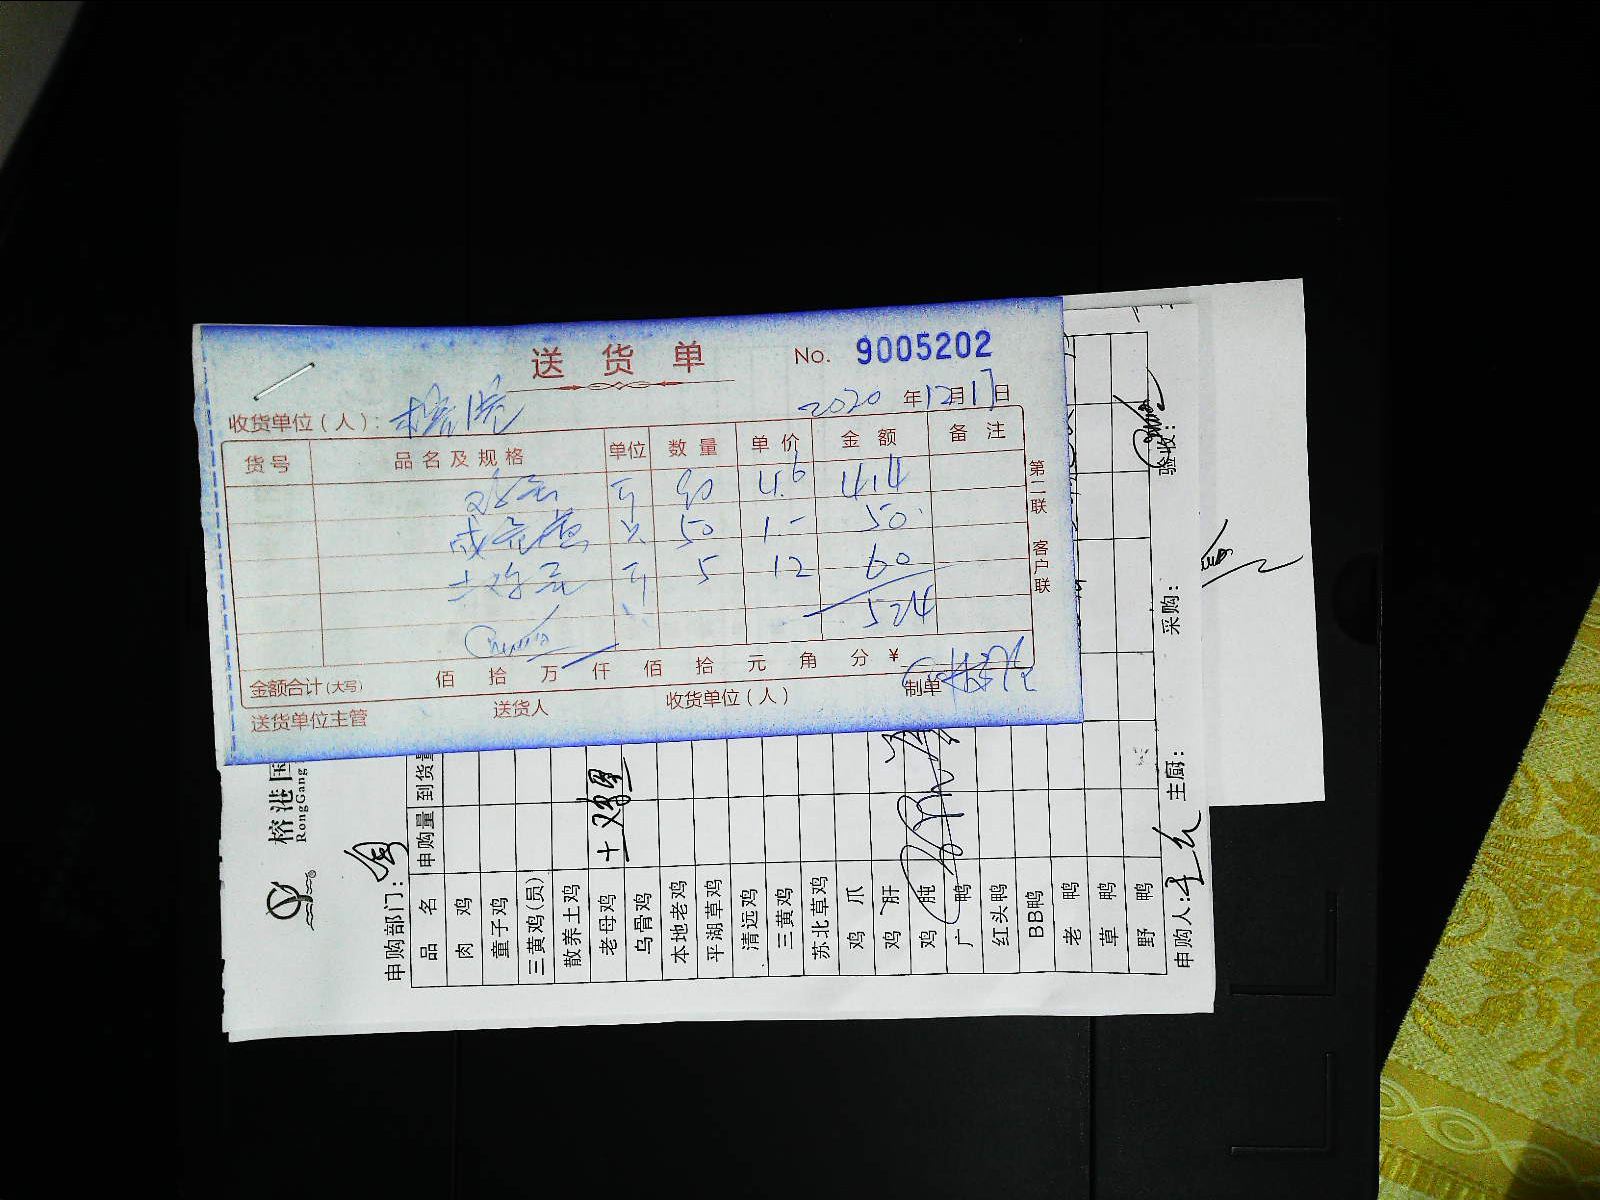 送 货 单 No. 9005202
收货单位（人）：榕港 2020 年 12 月 17 日
货号 品名及规格 单位 数量 单价 金额 备注
鸡蛋 斤 90 4.6 414
咸蛋黄 只 50 1.- 50
土鸡蛋 斤 5 12 60
524
金额合计(大写) 佰 拾 万 仟 佰 拾 元 角 分 ¥
送货单位主管 送货人 收货单位（人） 制单
第二联 客户联
榕港国
RongGang
申购部门：
品 名 申购量 到货量
肉 鸡
童子鸡
三黄鸡(员)
散养土鸡
老母鸡 土鸡蛋
乌骨鸡
本地老鸡
平湖草鸡
清远鸡
三黄鸡
苏北草鸡
鸡 爪
鸡 肝
鸡 肫
广 鸭
红头鸭
BB鸭
老 鸭
草 鸭
野 鸭
申购人: 主厨: 采购: 验收: